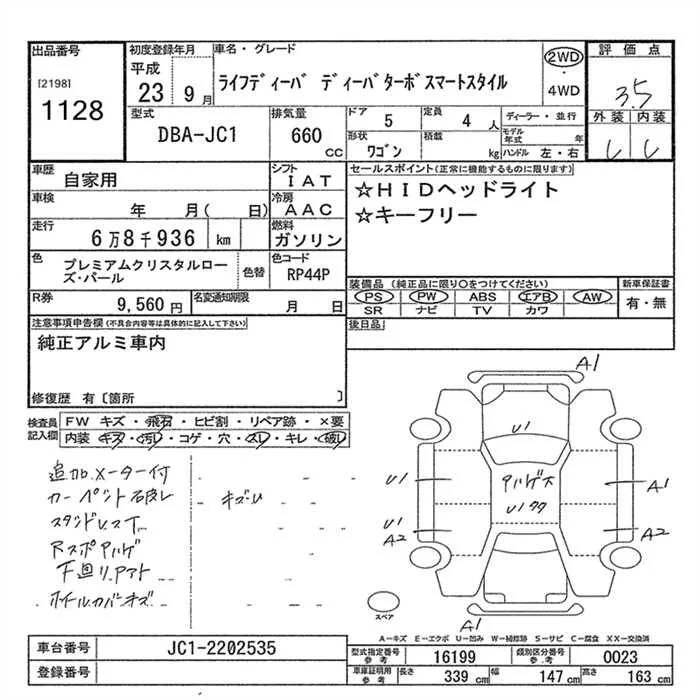 出品番号
[2198]
1128
初度登録年月
平成
23 9月
車名・グレード
ライフディーバ ディーバターボスマートスタイル
2WD
・
4WD
評価点
3.5
外装 内装
型式
DBA-JC1
排気量
660 CC
ドア 5
定員 4 人
形状 ワゴン
積載 kg
ディーラー・並行
モデル年式 年
ハンドル 左・右
車歴 自家用
シフト IAT
車検 年 月( 日)
冷房 AAC
走行 6万8千936 km
燃料 ガソリン
色 プレミアムクリスタルローズ・パール
色替
色コード RP44P
R券 9,560円
名変通知期限 月 日
セールスポイント(正常に機能するものに限ります)
☆HIDヘッドライト
☆キーフリー
装備品 (純正品に限り○をつけてください)
PS PW ABS エアB AW
SR ナビ TV カワ
新車保証書
有・無
後日品
注意事項申告欄(不具合内容等は具体的に記入して下さい)
純正アルミ車内
修復歴 有〔箇所 〕
検査員記入欄
FW キズ・飛石・ヒビ割・リペア跡・×要
内装 キズ・汚レ・コゲ・穴・スレ・キレ・破レ
追加メーター付
カーペント破レ
キズU
下廻リサビ
ホイルカバーキズ
A1
U1
U1
A1
U1
A2
A2
スペア
A1
A－キズ E－エクボ U－凹み W－補修跡 S－サビ C－腐食 XX－交換済
車台番号 JC1-2202535
登録番号
型式指定番号参考 16199
類別区分番号参考 0023
車庫証明用参考 長さ 339 cm 幅 147 cm 高さ 163 cm